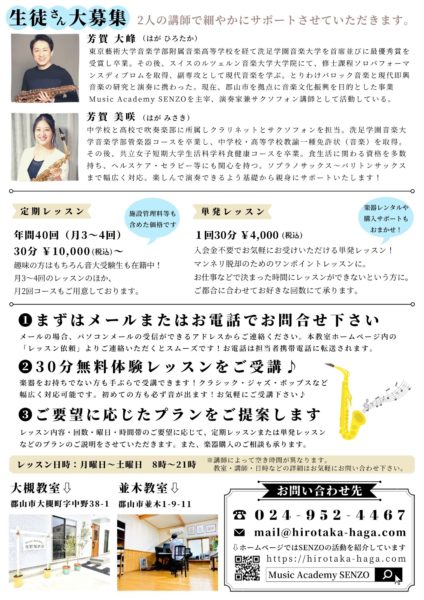 生徒さん大募集 2人の講師で細やかにサポートさせていただきます。
芳賀 大峰（はが ひろたか）
東京藝術大学音楽学部附属音楽高等学校を経て洗足学園音楽大学を首席並びに最優秀賞を
受賞し卒業。その後、スイスのルツェルン音楽大学大学院にて、修士課程ソロパフォーマ
ンスディプロムを取得、副専攻として現代音楽を学ぶ。とりわけバロック音楽と現代即興
音楽の研究と演奏に携わった。現在、郡山市を拠点に音楽文化振興を目的とした事業
Music Academy SENZOを主宰、演奏家兼サクソフォン講師として活動している。
芳賀 美咲（はが みさき）
中学校と高校で吹奏楽部に所属しクラリネットとサクソフォンを担当。洗足学園音楽大
学音楽学部管楽器コースを卒業し、中学校・高等学校教諭一種免許状（音楽）を取得。
その後、共立女子短期大学生活科学科食健康コースを卒業。食生活に関わる資格を多数
持ち、ヘルスケア・セラピー等にも関心を持つ。ソプラノサックス～バリトンサックス
まで幅広く対応。楽しんで演奏できるよう基礎から親身にサポートいたします！
定期レッスン
施設管理料等も
含めた価格です
年間40回（月3～4回）
30分 ¥10,000(税込)～
趣味の方はもちろん音大受験生も在籍中！
月3～4回のレッスンのほか、
月2回コースもご用意しております。
単発レッスン
楽器レンタルや
購入サポートも
おまかせ！
1回30分 ¥4,000(税込)
入会金不要でお気軽にお受けいただける単発レッスン！
マンネリ脱却のためのワンポイントレッスンに。
お仕事などで決まった時間にレッスンができないという方に。
ご都合に合わせてお好きな回数にて承ります。
❶まずはメールまたはお電話でお問合せ下さい
メールの場合、パソコンメールの受信ができるアドレスからご連絡ください。本教室ホームページ内の
「レッスン依頼」よりご連絡いただくとスムーズです！お電話は担当者携帯電話に転送されます。
❷30分無料体験レッスンをご受講♪
楽器をお持ちでない方も手ぶらで受講できます！クラシック・ジャズ・ポップスなど
幅広く対応可能です。初めての方も必ず音が出ます！お気軽にご受講下さい♪
❸ご要望に応じたプランをご提案します
レッスン内容・回数・曜日・時間帯のご要望に応じて、定期レッスンまたは単発レッスン
などのプランのご説明をさせていただきます。また、楽器購入のご相談も承ります。
レッスン日時：月曜日～土曜日 8時～21時
※講師によって空き時間が異なります。
教室・講師・日時などの詳細はお気軽にお問い合わせ下さい。
大槻教室⇩
郡山市大槻町字中野38-1
並木教室⇩
郡山市並木1-9-11
お問い合わせ先
☎ 024-952-4467
✉ mail@hirotaka-haga.com
⇩ホームページではSENZOの活動を紹介しています
https://hirotaka-haga.com
Music Academy SENZO